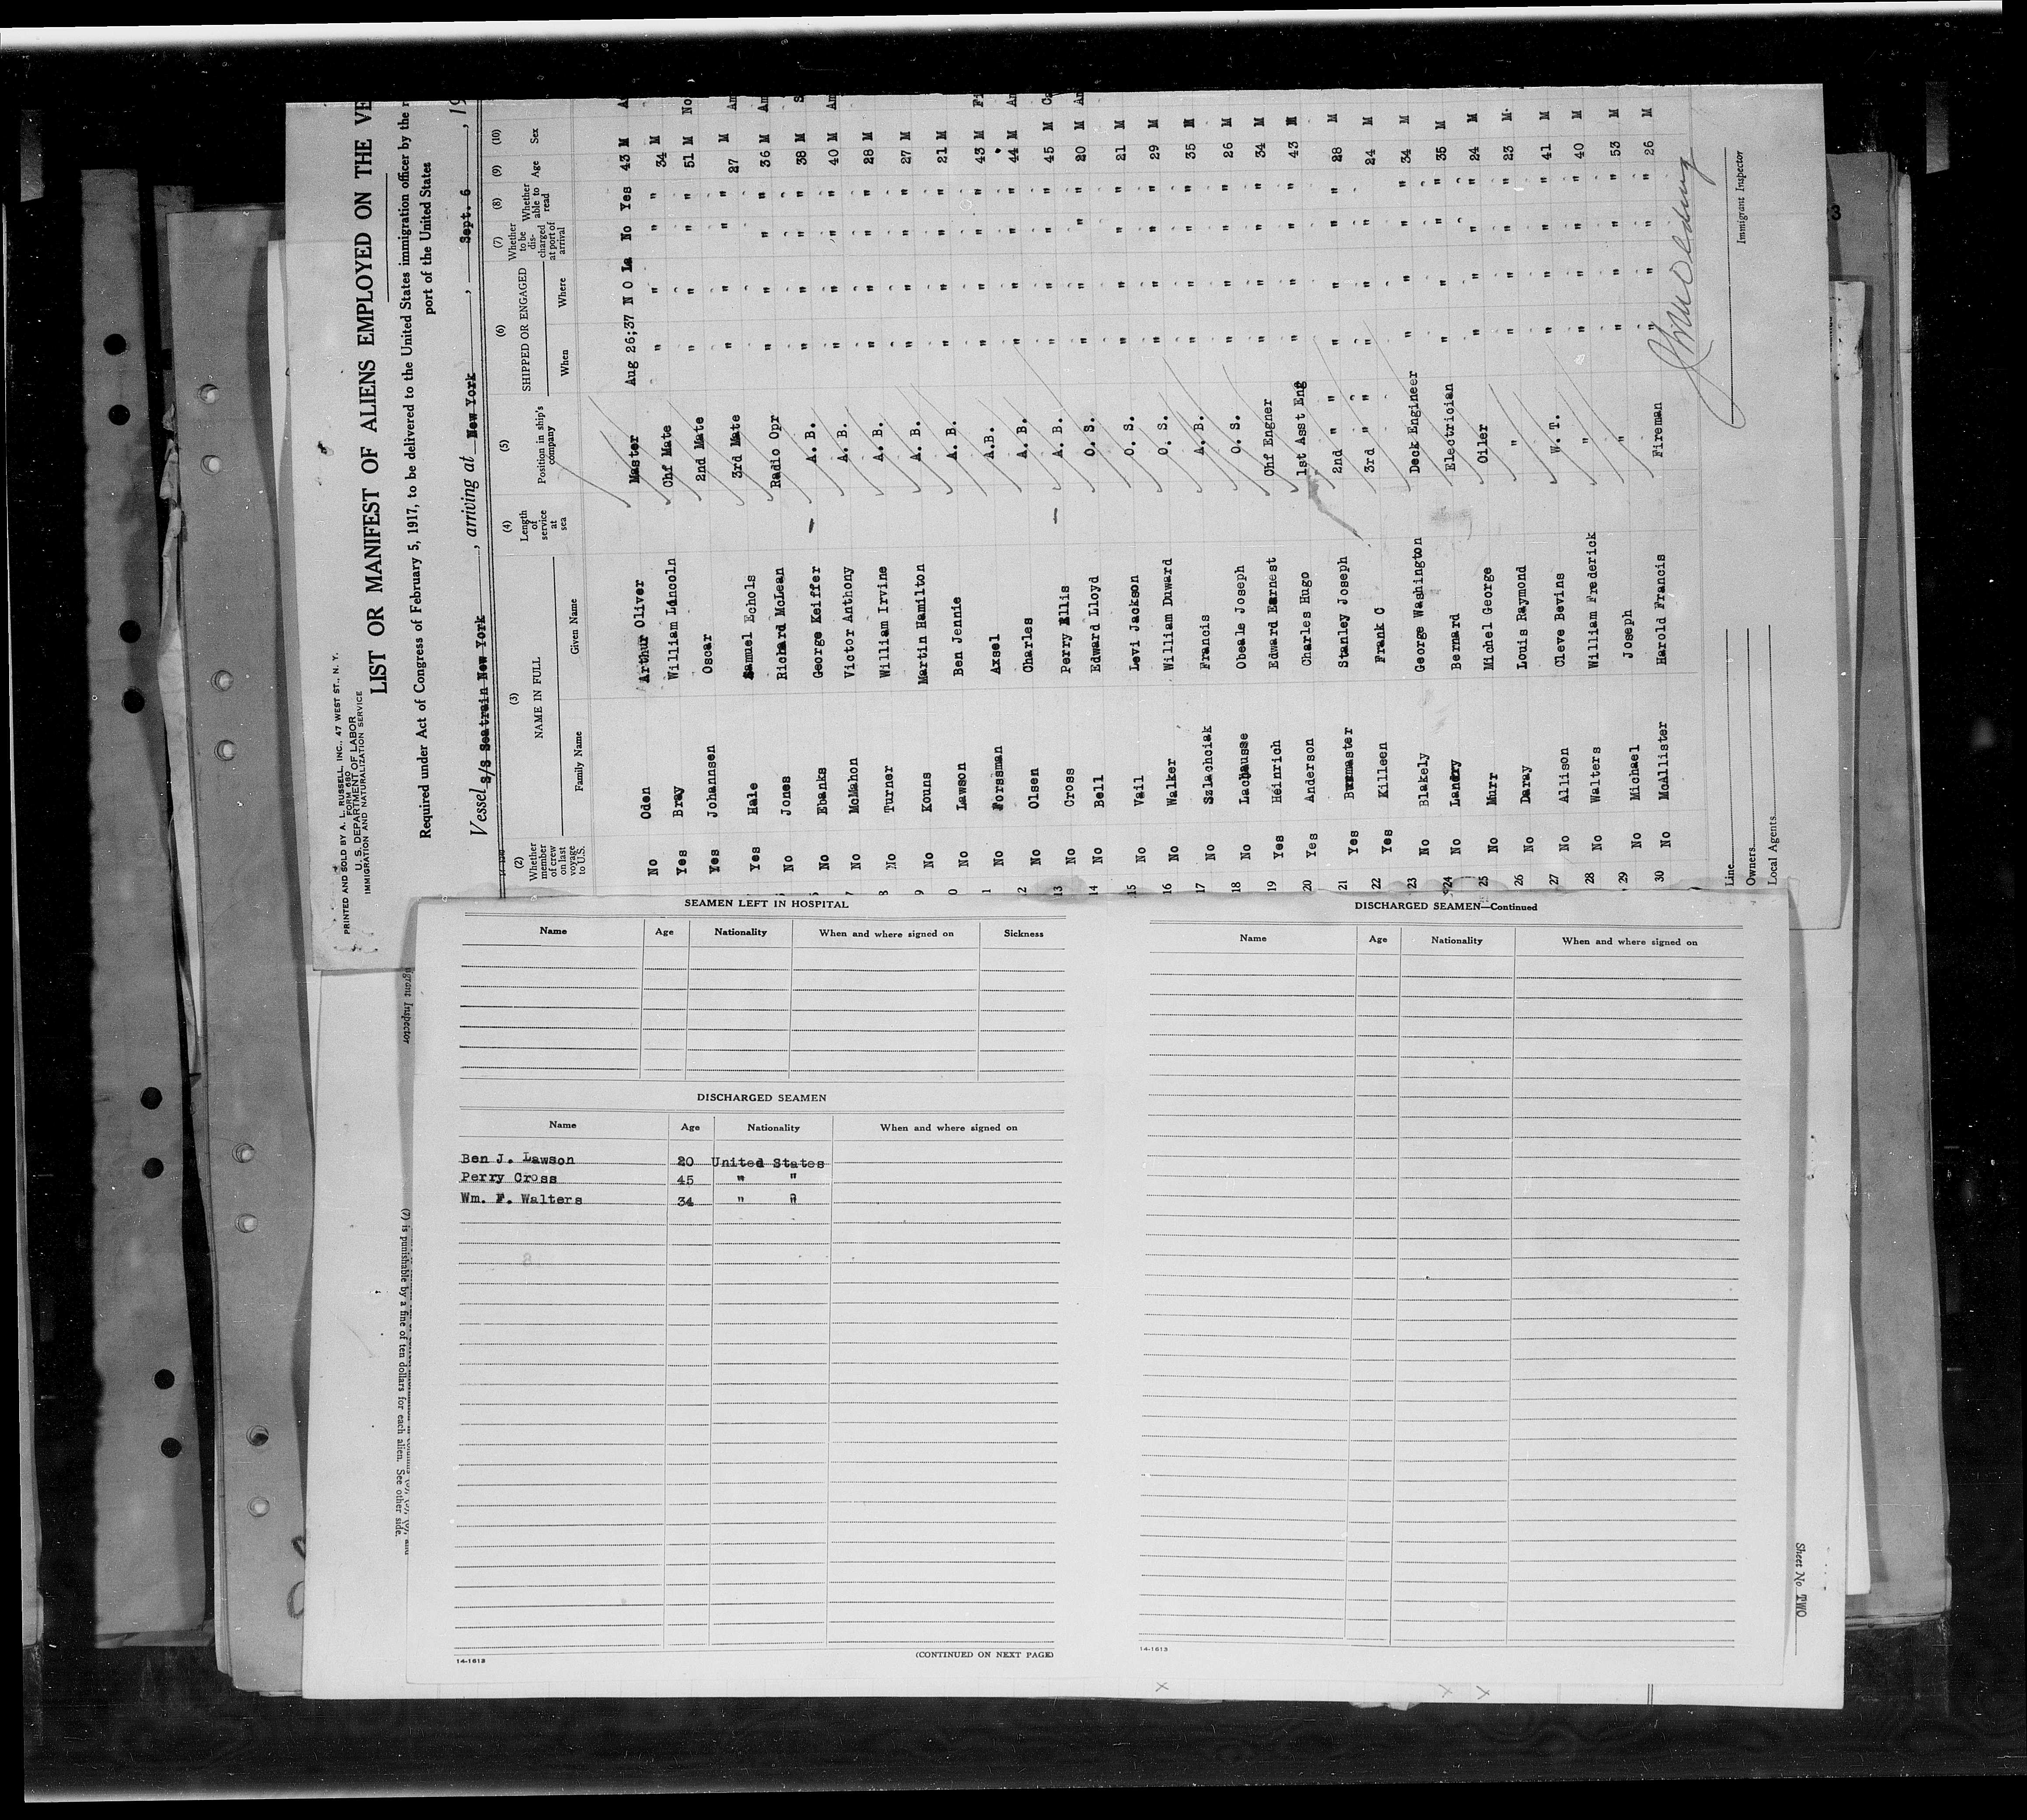 PRINTED AND SOLD BY A. L. RUSSELL, INC., 47 WEST ST., N. Y.
FORM 680
U. S. DEPARTMENT OF LABOR
IMMIGRATION AND NATURALIZATION SERVICE
LIST OR MANIFEST OF ALIENS EMPLOYED ON THE VE
Required under Act of Congress of February 5, 1917, to be delivered to the United States immigration officer by the r
port of the United States
Vessel S/S Seatrain New York, arriving at New York, Sept. 6, 19
(2) (3) (4) (5) (6) (7) (8) (9) (10)
Whether member of crew on last voyage to U.S. NAME IN FULL Family Name Given Name Length of service at sea Position in ship's company SHIPPED OR ENGAGED When Where Whether to be discharged at port of arrival Whether able to read Age Sex
No Oden Arthur Oliver Master Aug 26;37 N O La No Yes 43 M
Yes Bray William Lincoln Chf Mate " " " " 34 M
Yes Johannsen Oscar 2nd Mate " " " " 51 M No
Yes Hale Samuel Echols 3rd Mate " " " " 27 M Am
No Jones Richard McLean Radio Opr " " " " 36 M Am
No Ebanks George Keiffer — A. B. " " " " 38 M S
7 No McMahon Victor Anthony A. B. " " " " 40 M Am
8 No Turner William Irvine A. B. " " " " 28 M
9 No Kouns Martin Hamilton A. B. " " " " 27 M
0 No Lawson Ben Jennie A. B. " " " " 21 M
1 No Forssman Axsel A.B. " " " " 43 M Fi
12 No Olsen Charles A. B. " " " " 44 M Am
13 No Cross Perry Ellis — A. B. " " " " 45 M Ca
14 No Bell Edward Lloyd O. S. " " " " 20 M Am
15 No Vail Levi Jackson O. S. " " " " 21 M
16 No Walker William Duward O. S. " " " " 29 M
17 No Szlachciak Francis A. B. " " " " 35 M
18 No Lachausse Obeale Joseph O. S. " " " " 26 M
19 Yes Heinrich Edward Earnest Chf Engner " " " " 34 M
20 Yes Anderson Charles Hugo 1st Asst Eng " " " " 43 M
21 Yes Burmaster Stanley Joseph 2nd " " " " " " 28 M
22 Yes Killeen Frank C 3rd " " " " " 24 M
23 No Blakely George Washington Deck Engineer " " " " 34 M
24 No Landry Bernard Electrician " " " " 35 M
25 No Murr Michel George Oiler " " " " 24 M
26 No Daray Louis Raymond " " " " " 23 M
27 No Allison Cleve Bevins W. T. " " " " 41 M
28 No Walters William Frederick " " " " " 40 M
29 No Michael Joseph " " " " " 53 M
30 No McAllister Harold Francis Fireman " " " " 26 M
Line
Owners
Local Agents
Immigrant Inspector
SEAMEN LEFT IN HOSPITAL
Name Age Nationality When and where signed on Sickness
DISCHARGED SEAMEN
Name Age Nationality When and where signed on
Ben J. Lawson 20 United States
Perry Cross 45 " "
Wm. F. Walters 34 " "
14-1613
(CONTINUED ON NEXT PAGE)
DISCHARGED SEAMEN—Continued
Name Age Nationality When and where signed on
14-1613
igrant Inspector
(7) is punishable by a fine of ten dollars for each alien. See other side.
Sheet No. TWO
3